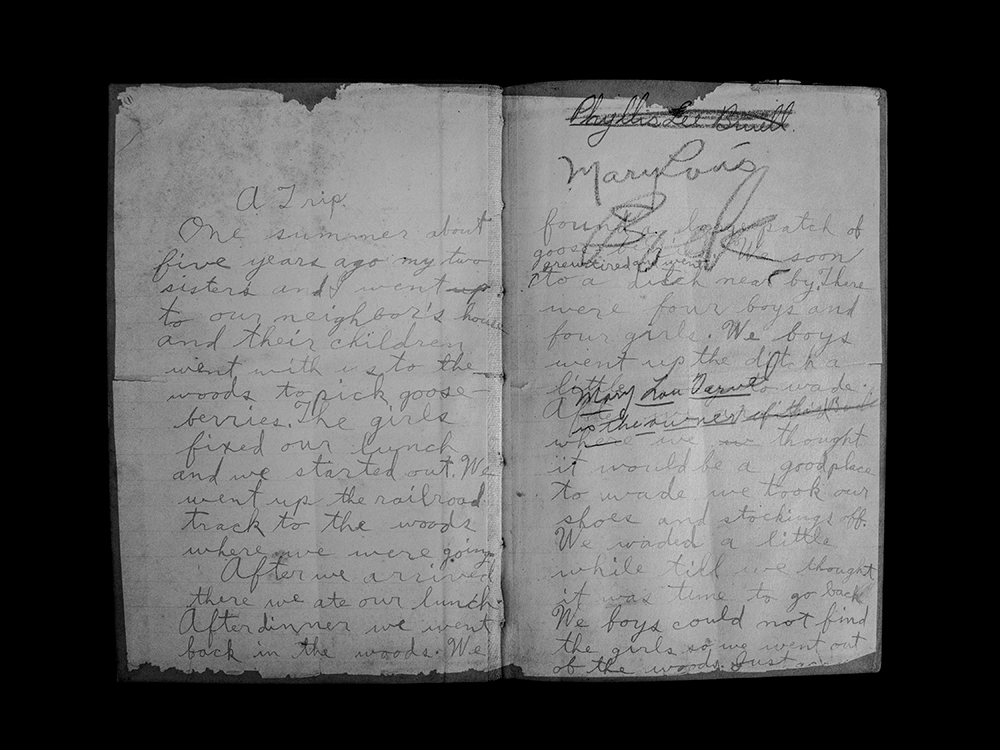 A Trip.
One summer about
five years ago my two
sisters and I went up
to our neighbor's house
and their children
went with us to the
woods to pick goose-
berries. The girls
fixed our lunch
and we started out. We
went up the railroad
track to the woods
where we were going
After we arrived
there we ate our lunch.
After dinner we went
back in the woods. We
Phyllis Lee
Mary Lou's
Book
found a large patch of
goose We soon
grew tired and went
to a ditch near by. There
were four boys and
four girls. We boys
went up the ditch a
little to wade.
Mary Lou
is the owner of this Book
where we thought
it would be a good place
to wade we took our
shoes and stockings off.
We waded a little
while till we thought
it was time to go back
We boys could not find
the girls so we went out
of the woods. Just